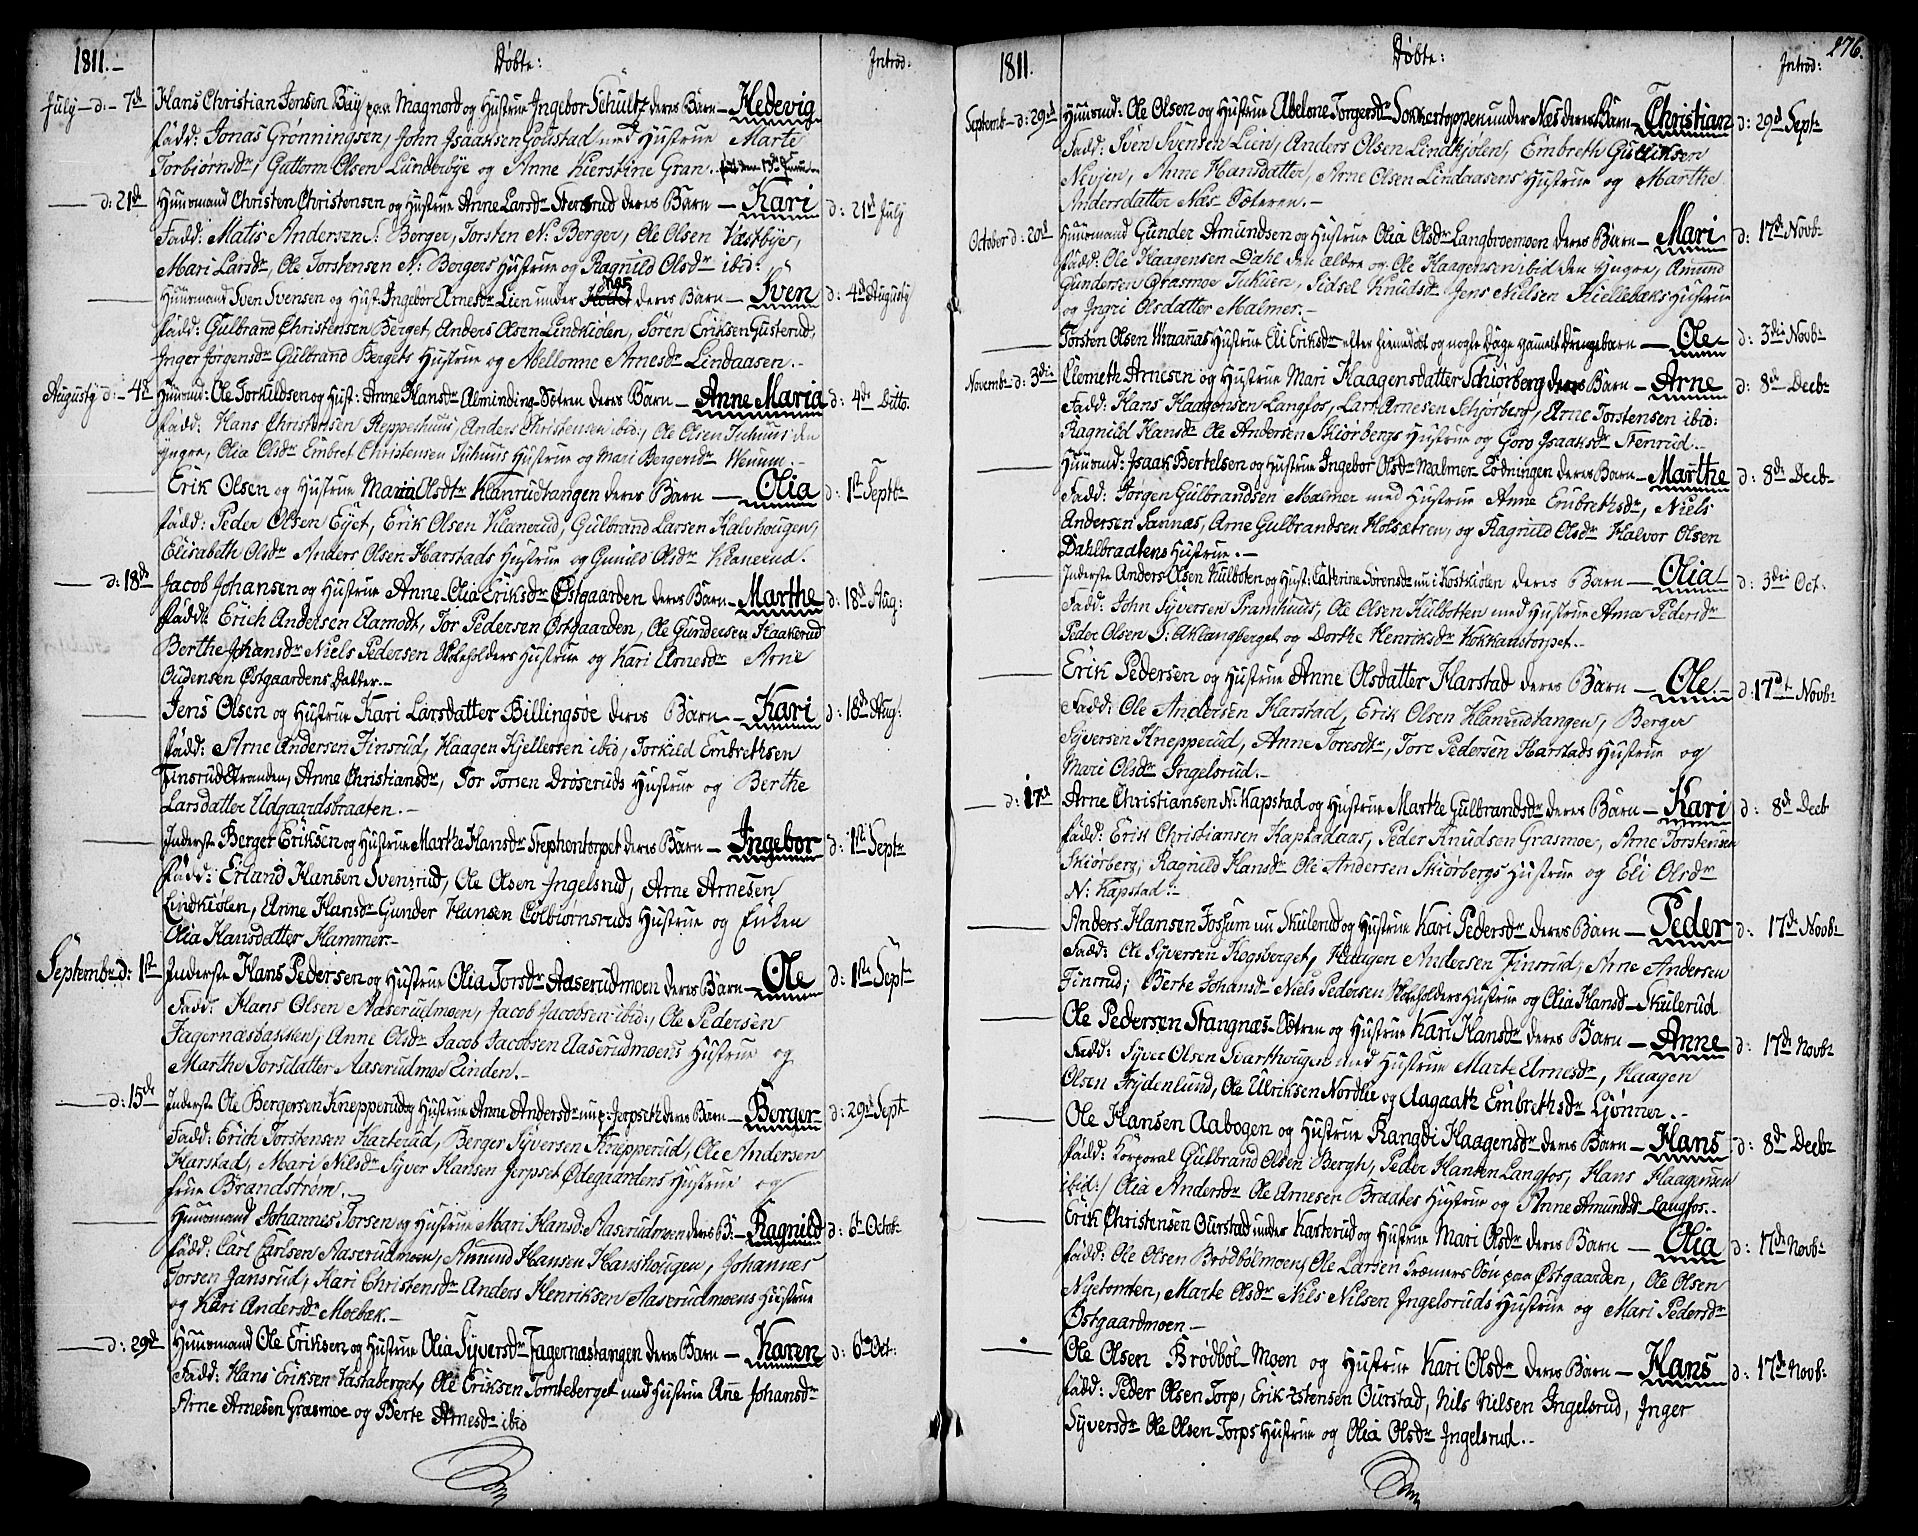 1811.— Døbte: Introd:
July – d: – 7de Hans Christian Jensen Bay paa Magnord og Hustrue Ingebor Schultz deres Barn – Hedevig
fadd: Jonas Grønningsen, John Isaaksen Golstad med Hustrue Marte
Torbiørnsdr, Guttorm Olsen Lundebye og Anne Kierstine Gran.
— d: 21de Huusmand Christen Christensen og Hustrue Anne Larsdr Stensrud deres Barn – Kari d: 21de July
Fadd: Matis Andersen S: Berger, Torsten N: Berger, Ole Olsen Vestbye,
Mari Larsdr, Ole Torstensen N: Bergers Hustrue og Ragnild Olsdr ibid:
— Huusmand Sven Svensen og Hust: Ingebor Arnesdr Lien under Nes deres Barn – Sven d: 4de Augusty
fadd: Gulbrand Christensen Berget, Anders Olsen Lindkiølen, Søren Eriksen Gusterud,
Inger Jørgensdr Gulbrand Bergets Hustrue og Abellonne Arnesdr Lindaasen.–
Augusty d: – 4de Huusmd: Ole Torkildsen og Hust: Anne Hansdr Alminding-Sætren deres Barn – Anne Maria d: 4de Ditto.
fadd: Hans Christensen Kepperhuus, Anders Christensen ibid:, Ole Olsen Juhuus den
yngre, Olia Olsdr Embret Christensen Juhuus Hustrue og Mari Bergersdr Wenum.–
— Erik Olsen og Hustrue Maria Olsdtr Klanrudtangen deres Barn — Olia d: 1st Septbr
fadd: Peder Olsen Eyet, Erik Olsen Klanerud, Gulbrand Larsen Halvhougen,
Elisabeth Olsdr Anders Olsen Harstads Hustrue og Gunild Olsdr Klanerud.
— d: 18de Jacob Johansen og Hustrue Anne Olia Eriksdr Østgaarden deres Barn – Marthe d: 18de Aug:
fadd: Erich Andersen Aamodt, Tor Pedersen Østgaarden, Ole Gundersen Haakerud
Berthe Johansdr Niels Pedersen Skoleholders Hustrue og Kari Arnesdr Arne
Oudensen Østgaardens Datter.–
— Jens Olsen og Hustrue Kari Larsdatter Billingsøe deres Barn – Kari d: 18de Aug:
fadd: Arne Andersen Finsrud, Haagen Kjellersen ibid, Torkild Embrethsen
Finsrudstranden, Anne Christiansdr, Tor Torsen Drøseruds Hustrue og Berthe
Larsdatter Udgaardsbraaten.–
— Inderste Berger Eriksen og Hustrue Marthe Hansdr Stephentorpet deres Barn – Ingebor d: 1st Septr
fadd: Erland Hansen Svensrud, Ole Olsen Ingelsrud, Arne Arnesen
Lindkiølen, Anne Hansdr Gunder Hansen Colbiørnsruds Hustrue og Enken
Olia Hansdatter Hammer.–
Septembr d: 1ste Inderste Hans Pedersen og Hustrue Olia Torsdr Aaserudmoen deres Barn – Ole d: 1ste Septr
Fadd: Hans Olsen Aaserudmoen, Jacob Jacobsen ibid:, Ole Pedersen
Fagernæsbakken, Anne Olsdr Jacob Jacobsen Aaserudmoens Hustrue og
Marthe Torsdatter Aaserudmoe Linden.–
— d: 15de Inderste Ole Bergersen Knepperud og Hustrue Anne Andersdr nu p: Jerpseth deres Barn – Berger d: 29de Septr
Fadd: Erich Torstensen Harterud, Berger Syversen Knepperud, Ole Andersen
Harstad, Mari Nilsdr Syver Hansen Jerpset Ødegaardens Hustrue og
frue Brandstrøm.–
— Huusmand Johannes Torsen og Hustrue Mari Hansd: Aaserudmoen deres B: – Ragnild d: 6te Octob:
fadd: Carl Carlsen Aaserudmoen, Amund Hansen Hanshougen, Johannes
Torsen Jansrud, Kari Christensdr Anders Henriksen Aaserudmoens Hustrue
og Kari Andersdr Moebak.–
— d: 29de Huusmand Ole Eriksen og Hustrue Olia Syversdr Fagernæstangen deres Barn – Karen d: 6te Oct:
Fadd: Hans Eriksen Vastaberget, Ole Eriksen Tomteberget med Hustrue Anne Johansdr
Arne Arnesen Grasmoe og Berte Arnesdr ibid
1811. Døbte: Introd: 276.
Septemb – d: 29de Huusmd: Ole Olsen og Hustrue Abelone Torgersdr Sokkertoppen under Nes deres Barn – Christian d: 29de Septr
Fadd: Sven Svensen Lien, Anders Olsen Lindkjølen, Embreth Gulliksen
Nevsen, Anne Hansdatter, Arne Olsen Lindaasens Hustrue og Marthe
Andersdatter Næs-Sæteren.–
October d: 20de Huusmand Gunder Amundsen og Hustrue Olia Olsdr Langbroemoen deres Barn – Mari d: 17de Novbr
fadd: Ole Haagensen Dahl den ældre og Ole Haagensen ibid den Yngre, Amund
Gundersen Grasmoe Jukuen, Sidsel Knudsdr Jens Nielsen Kiellebæks Hustrue
og Ingri Olsdatter Malmer.–
— Torsten Olsen Maanas Hustrue Eli Eriksdr efter hiemedøbt og nogle Dage gamelt Drengebarn — Ole d: 3die Novbr
Novembr d: 3die Clemeth Arnesen og Hustrue Mari Haagensdatter Schiørberg deres Barn – Arne d: 8de Decbr
Fadd: Hans Haagensen Langfos, Lars Arnesen Schjørberg, Arne Torstensen ibid:
Ragnild Hansdr Ole Andersen Skiørbergs Hustrue og Goro Isaaksdr Stenrud.–
— Huusmd: Isaak Bertelsen og Hustrue Ingebor Olsdr Malmer-Lodningen deres Barn – Marthe d: 8de Decbr
Fadd: Jørgen Gulbrandsen Malmer med Hustrue Anne Embrethsdr, Niels
Andersen Sannæs, Arne Gulbrandsen Holsætren, og Ragnild Olsdr Halvor Olsen
Dahlbraatens Hustrue.–
— Inderste Anders Olsen Kulboten og Hust: Cathrine Sørensdr nu i Kostkiolen deres Barn – Olia d: 3die Oct:
Fadd: John Syversen Pramhuus, Ole Olsen Kulbotten med Hustrue Anna Pedersdr
Peder Olsen S: Aklangberget og Dorthe Henriksdr Kokkanstorpet.–
— Erik Pedersen og Hustrue Anne Olsdatter Harstad deres Barn – Ole.– d: 17de Novbr
Fadd: Ole Andersen Harstad, Erik Olsen Klanrudtangen, Berger
Syversen Knepperud, Anne Toresdtr, Tore Pedersen Harstads Hustrue og
Mari Olsdr Ingelsrud.–
— d: 17de Arne Christiansen N: Kapstad og Hustrue Marthe Gulbrandsdr deres Barn – Kari d: 8de Decb
fadd: Erik Christiansen Kapstadaas, Peder Knudsen Grasmoe, Arne Torstensen
Skiørberg, Ragnild Hansdr Ole Andersen Skiørbergs Hustrue og Eli Olsdr
N: Kapstad.–
— Anders Hansen Fossum nu Skulerud og Hustrue Kari Pedersdr deres Barn – Peder d: 17de Novbr
Fadd: Ole Syversen Kogsberget, Haagen Andersen Finsrud, Arne Andersen
Finsrud, Berte Johansdr Niels Pedersen Skoleholders Hustrue og Olia Hansd– Skulerud
— Ole Pedersen Stangnæs-Sætren og Hustrue Kari Hansdr deres Barn – Anne d: 17de Novbr
Fadd: Syver Olsen Svarthougen med Hustrue Marte Arnesdr, Haagen
Olsen Frydenlund, Ole Ulriksen Nordlie og Aagaath Embrethsdr Gønner.–
— Ole Hansen Aabogen og Hustrue Rangdi Haagensdr deres Barn – Hans d: 8de Decbr
fadd: Korporal Gulbrand Olsen Bergh, Peder Hansen Langfos, Hans Haagensen
ibid:/ Olia Andersdr Ole Arnesen Braates Hustrue og Anne Amundsd– Langfos.–
— Erik Christensen Ourstad under Harterud og Hustrue Mari Olsdr deres Barn – Olia d: 17de Novbr
fadd: Ole Olsen Brødbølmoen, Ole Larsen Kræmers Søn paa Østgaarden, Ole Olsen
Nyetomten, Marte Olsdr Nils Nilsen Ingelsruds Hustrue og Mari Pedersdr
Østgaardmoen.–
— Ole Olsen Brødbøl-Moen og Hustrue Kari Olsdr deres Barn – Hans d: 17de Novbr
fadd: Peder Olsen Torp, Erik Xstensen Ourstad, Nils Nilsen Ingelsrud, Inger
Syversdr Ole Olsen Torps Hustrue og Olia Olsdr Ingelsrud.–